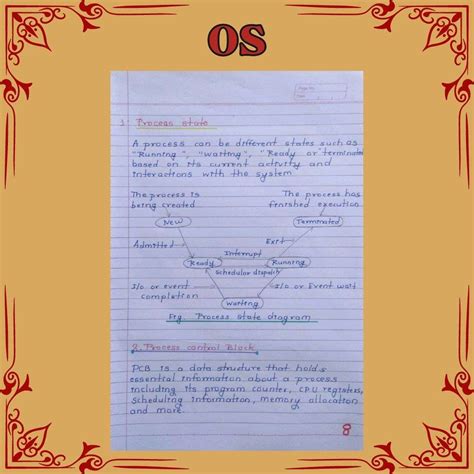 OS
Page No.
1. Process state
A process can be different states such as
"Running", "waiting", "Ready or terminated
based on its current activity and
interactions with the system
The process is
being created
The process has
finished execution.
New
Terminated
Admitted
Interrupt
Exit
Ready
Running
Schedular dispatch
I/o or event
completion
I/o or Event wait
Waiting
Fig. Process state diagram
2. Process control Block
PCB is a data structure that holds
essential information about a process
including its program counter, CPU registers,
scheduling information, memory allocation
and more.
8